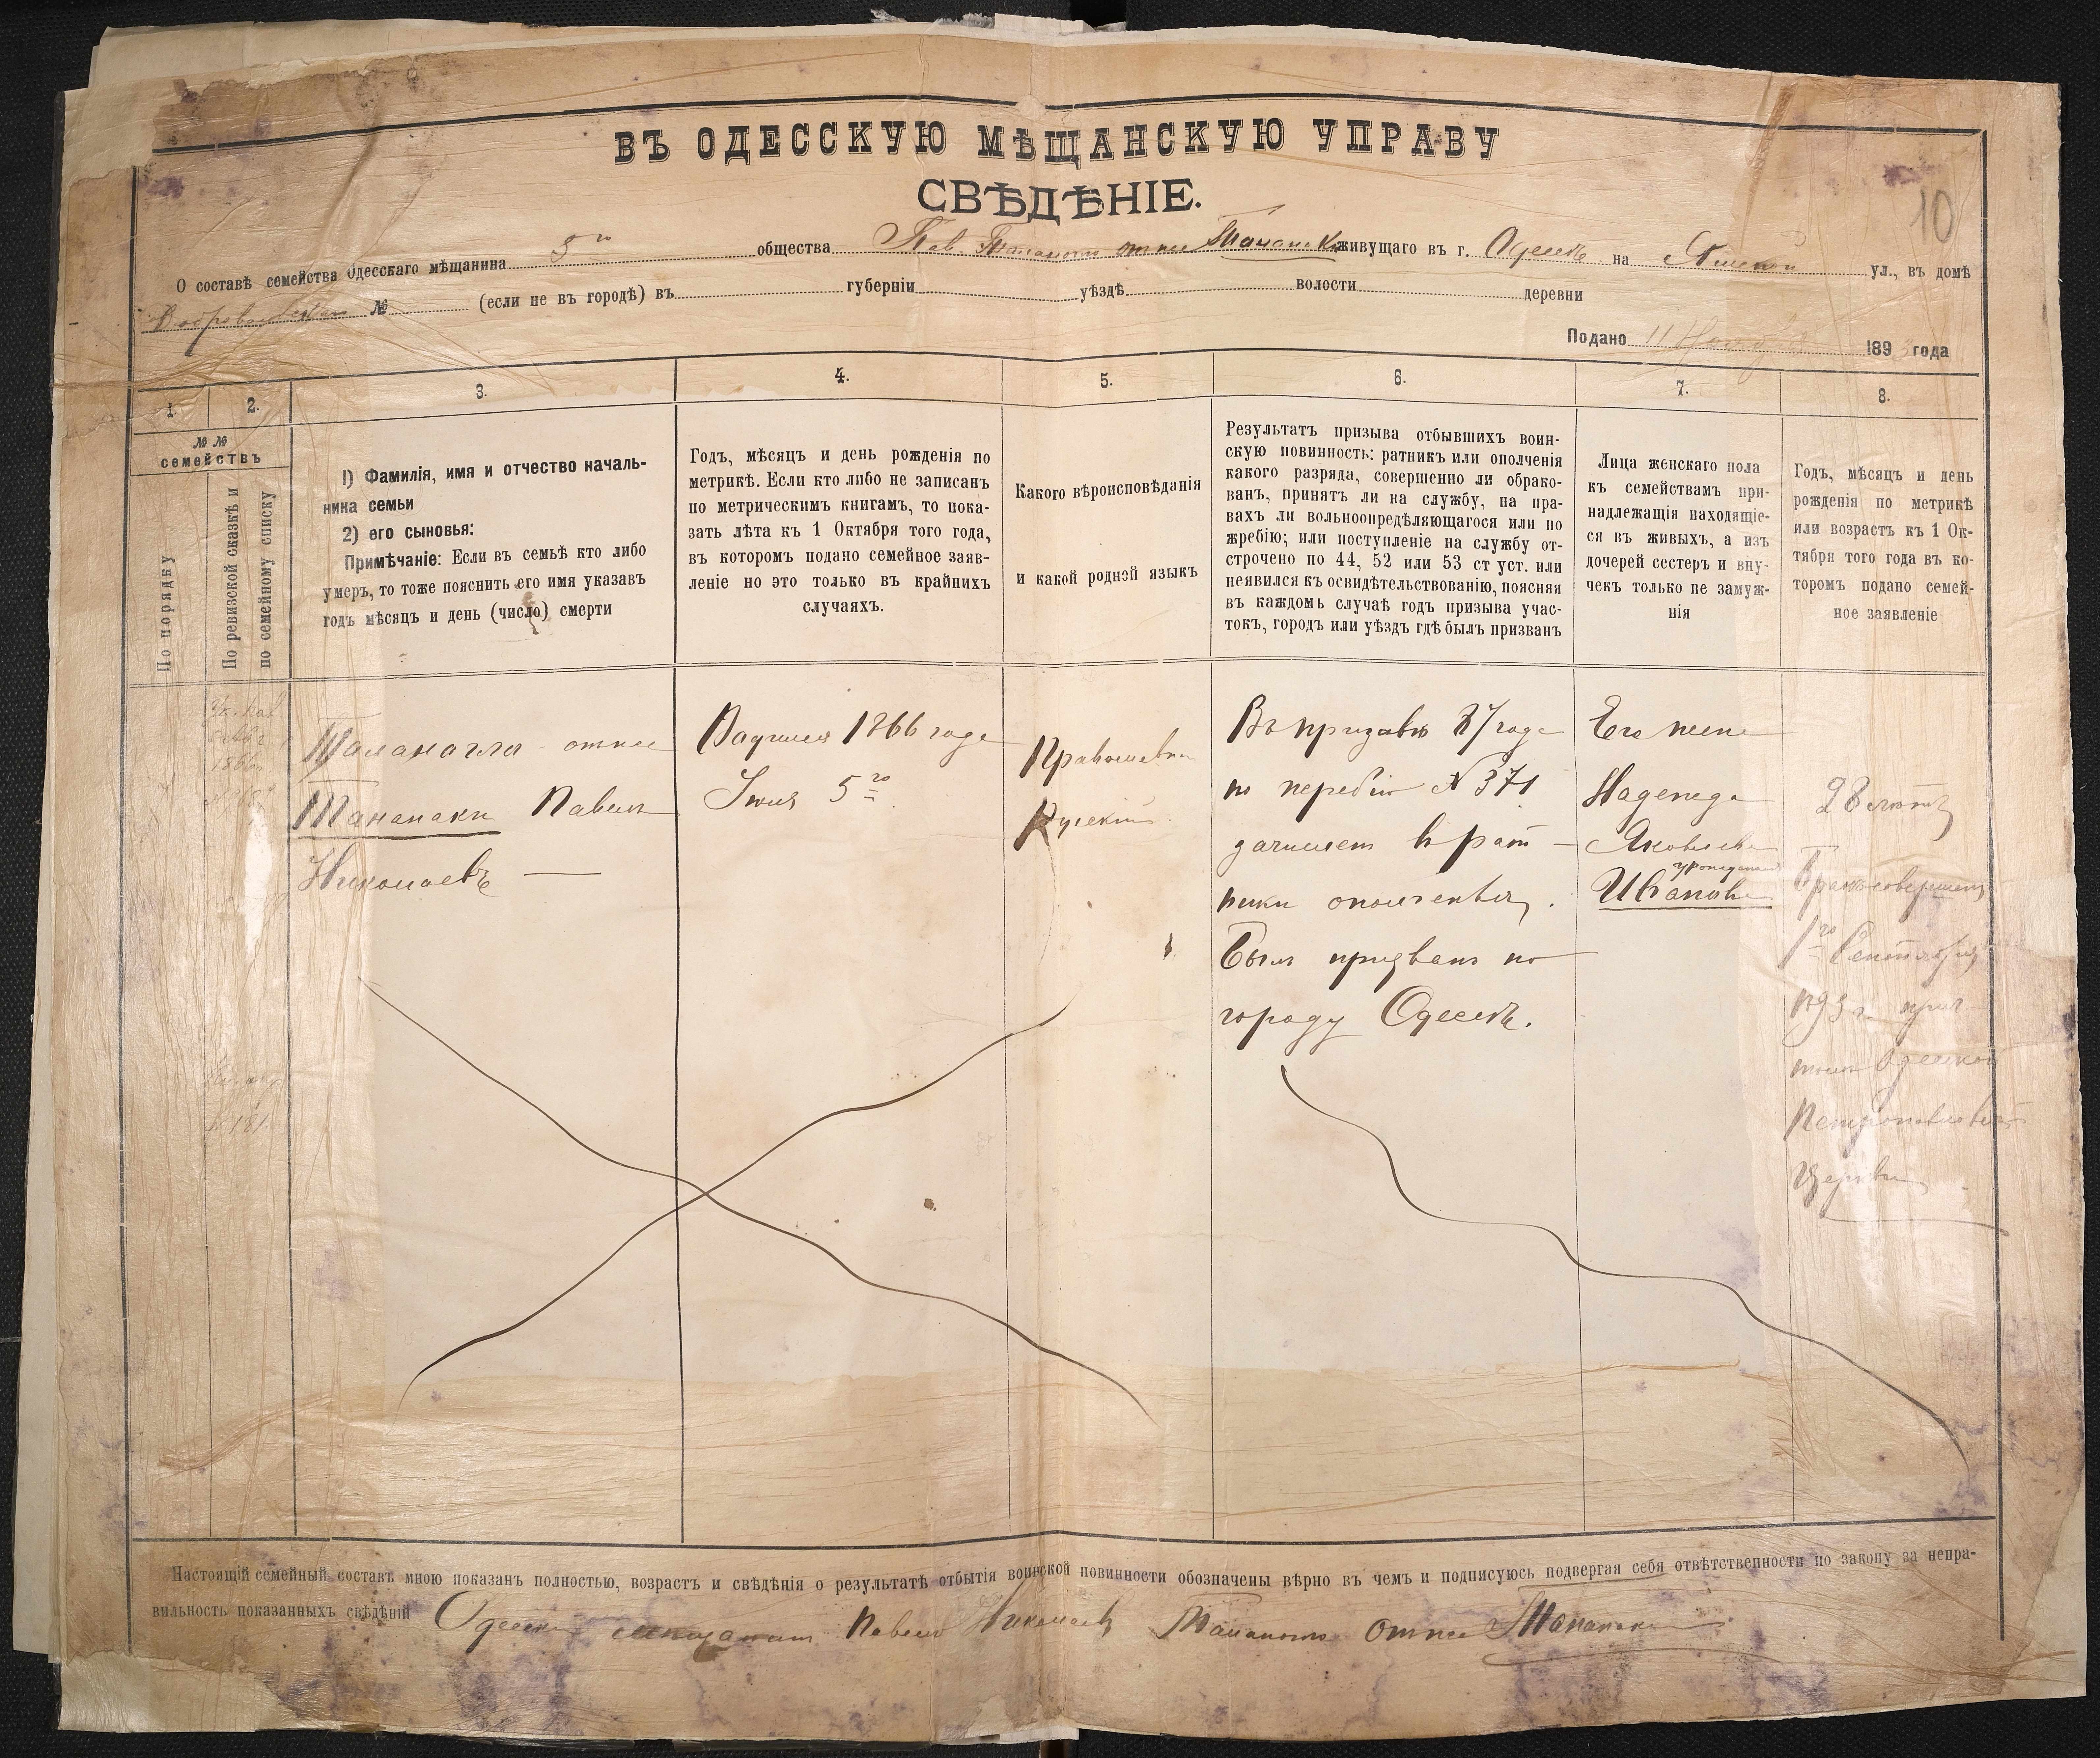 ВЪ ОДЕССКУЮ МѢЩАНСКУЮ УПРАВУ
СВѢДѢНІЕ.
10
О составѣ семейства Одесскаго мѣщанина 5го общества Пав. Танаоти живущаго въ г. Одессѣ на ул., въ домѣ
№ (если не въ городѣ) въ губерніи уѣздѣ волости деревни
Подано 11 Ноября 1893 года
1. 2. 3. 4. 5. 6. 7. 8.
№№ семействъ
По порядку
По ревизской сказкѣ и
по семейному списку
1) Фамилія, имя и отчество началь-
ника семьи
2) его сыновья:
Примѣчаніе: Если въ семьѣ кто либо
умеръ, то тоже пояснить его имя указавъ
годъ мѣсяцъ и день (число) смерти
Годъ, мѣсяцъ и день рожденія по
метрикѣ. Если кто либо не записанъ
по метрическимъ книгамъ, то пока-
зать лѣта къ 1 Октября того года,
въ которомъ подано семейное заяв-
леніе но это только въ крайнихъ
случаяхъ.
Какого вѣроисповѣданія
и какой родной языкъ
Результатъ призыва отбывшихъ воин-
скую повинность: ратникъ или ополченія
какого разряда, совершенно ли обрако-
ванъ, принятъ ли на службу, на пра-
вахъ ли вольноопредѣляющагося или по
жребію; или поступленіе на службу от-
строчено по 44, 52 или 53 ст уст. или
неявился къ освидѣтельствованію, поясняя
въ каждомъ случаѣ годъ призыва учас-
токъ, городъ или уѣздъ гдѣ былъ призванъ
Лица женскаго пола
къ семействамъ при-
надлежащія находящіе-
ся въ живыхъ, а изъ
дочерей сестеръ и вну-
чекъ только не замуж-
нія
Годъ, мѣсяцъ и день
рожденія по метрикѣ
или возрастъ къ 1 Ок-
тября того года въ ко-
торомъ подано семей-
ное заявленіе
Тананаки Павелъ
Николаевъ —
Родился 1866 года
Іюня 5го
Православн
Русскій
Въ призывъ 87 года
по жеребію № 371
зачисленъ в рат-
ники ополченія.
Былъ призванъ по
городу Одессѣ.
Его жена
Надежда
Яковлева
урожденная
Иванова
28 лѣтъ
Бракъ совершенъ
1го Сентября
1893 г. при
Одесской
Петропавловской
Церкви
Настоящій семейный составъ мною показанъ полностью, возрастъ и свѣдѣнія о результатѣ отбытія воинской повинности обозначены вѣрно въ чемъ и подписуюсь подвергая себя отвѣтственности по закону за непра-
вильность показанныхъ свѣдѣній Одесскій мещанинъ Павелъ Николаевъ Тананаки